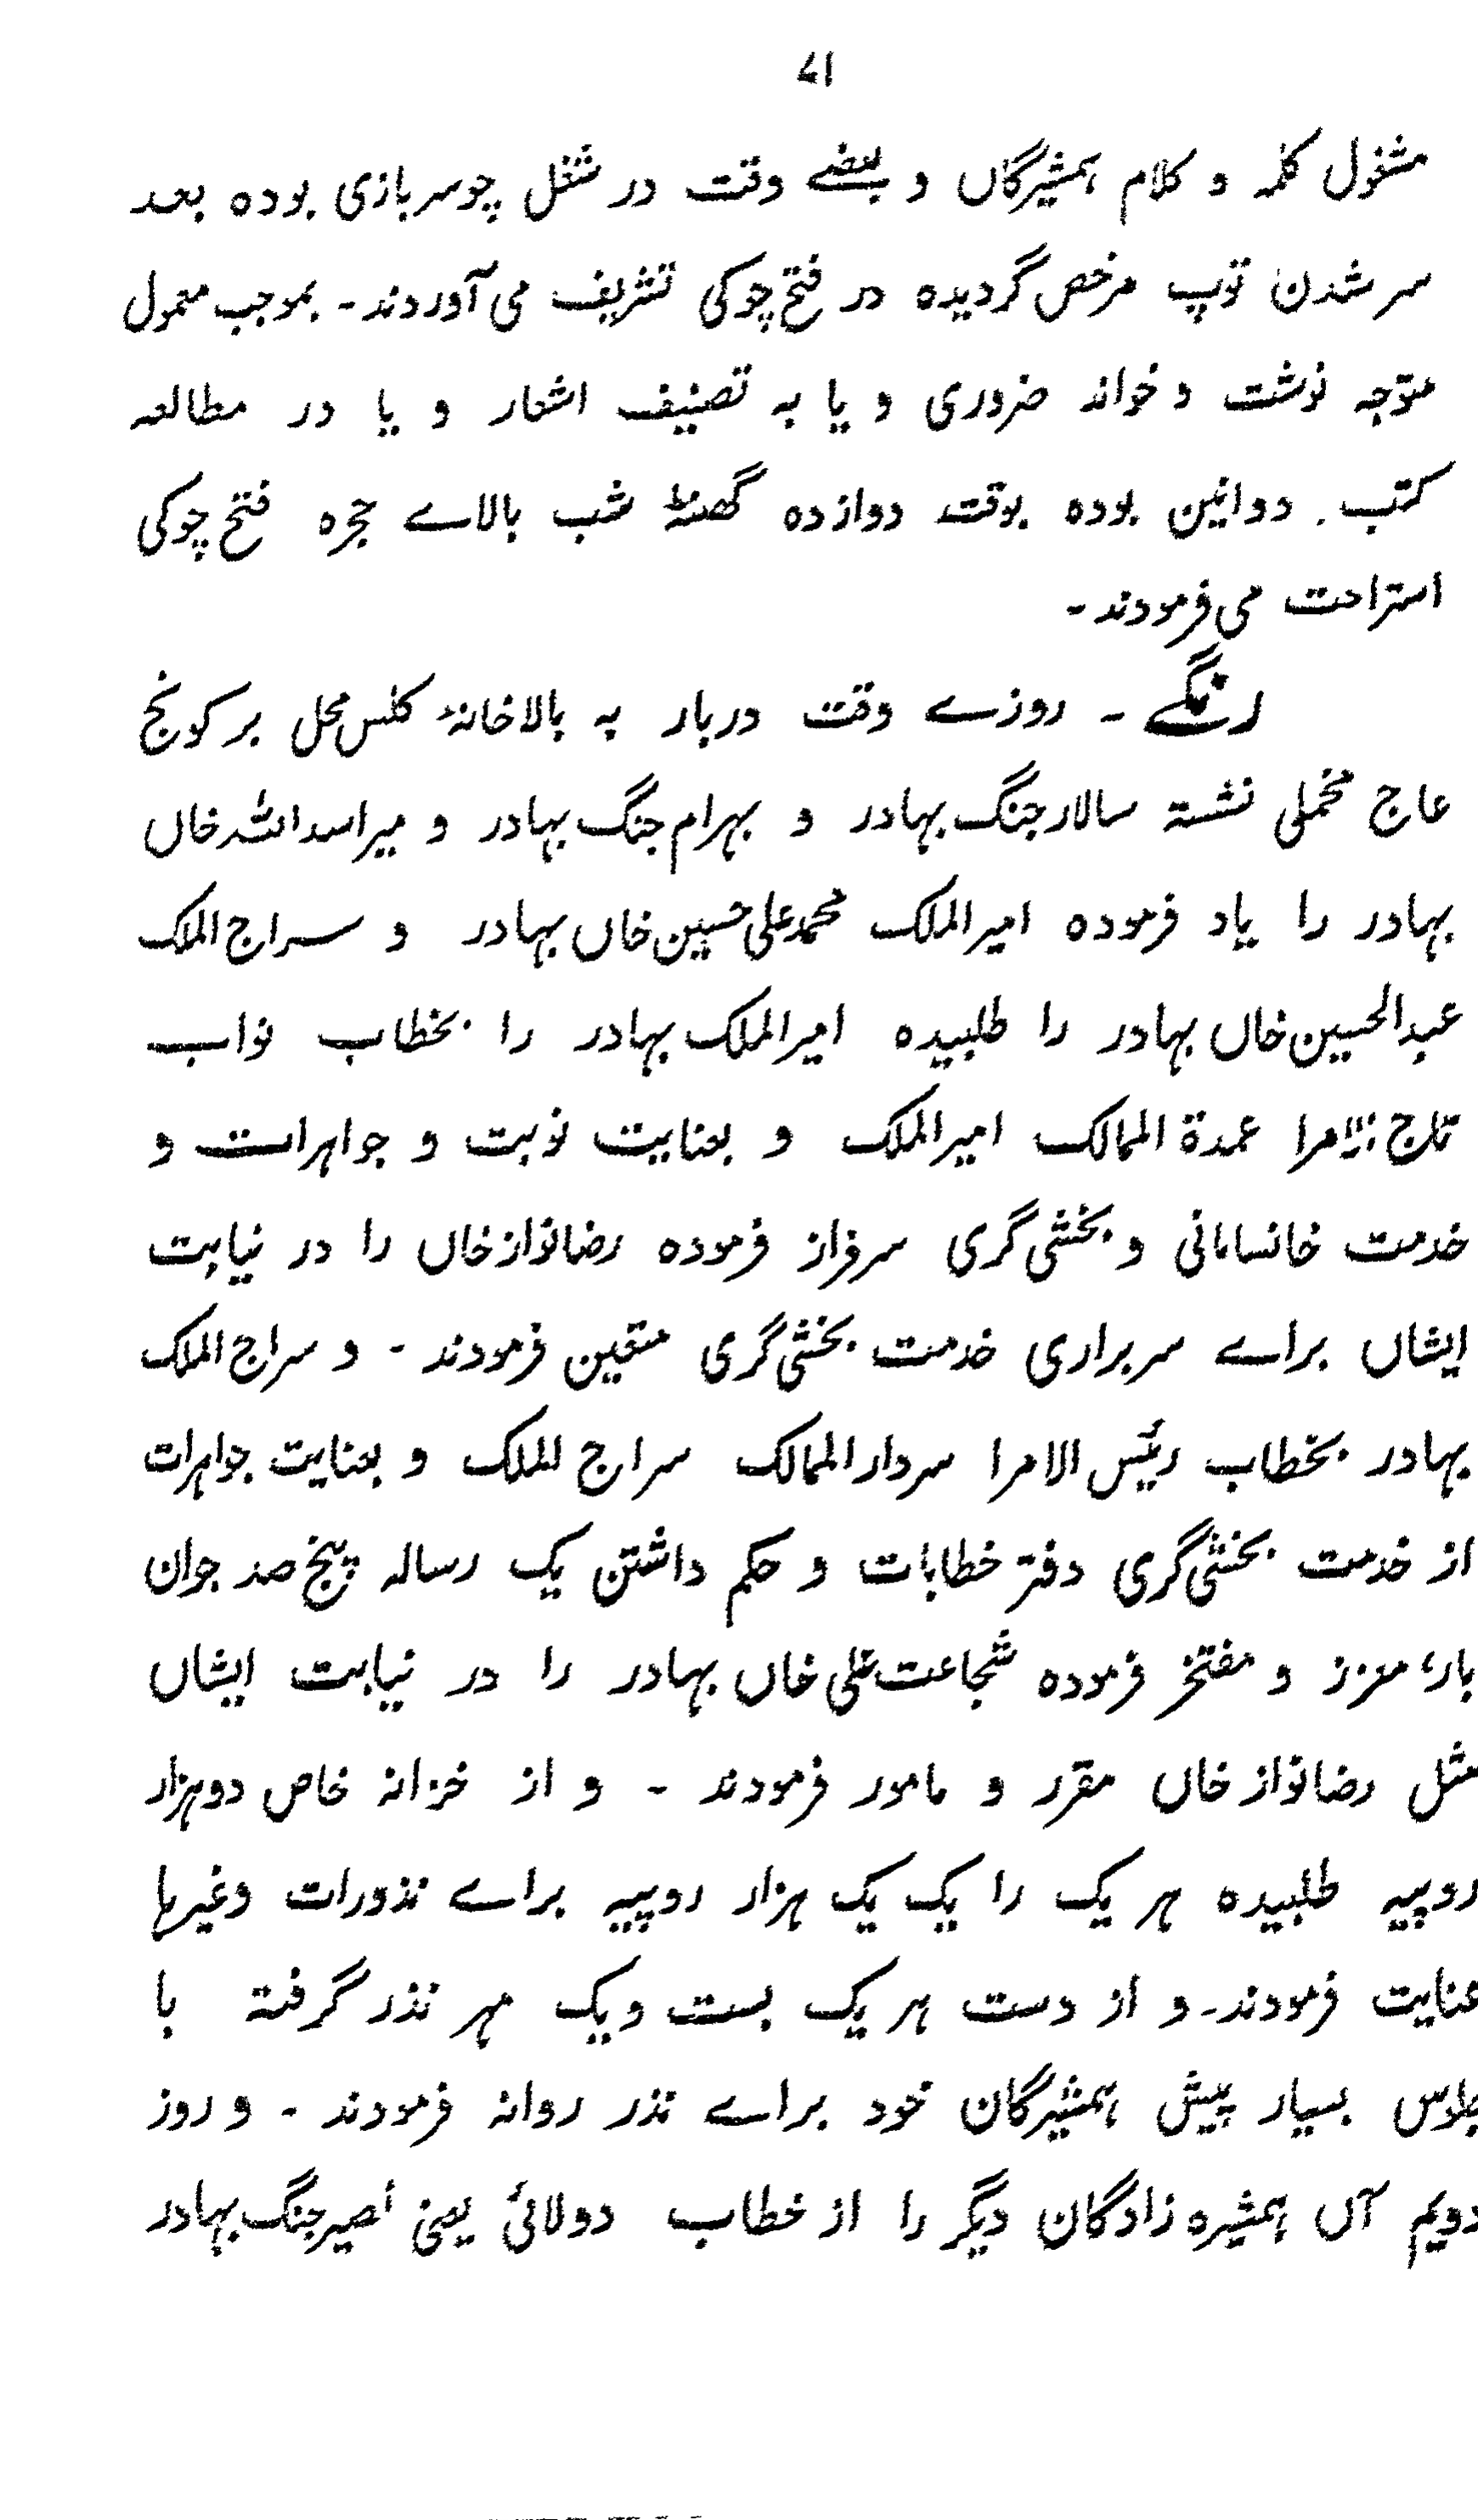 ۷۱
مشغول کلمہ و کلام ہمشیرگاں و بعضے وقت در شغل چوسربازی بودہ بعد
سر شدن توپ مرخص گردیدہ در فتح چوکی تشریف می آوردند۔ بموجب معمول
متوجہ نوشت و خواند ضروری و یا بہ تصنیف اشعار و یا در مطالعہ
کتب دوانین بودہ بوقت دوازدہ گھنٹۂ شب بالاے حجرہ فتح چوکی
استراحت می فرمودند۔
رنگے ۔ روزے وقت دربار بہ بالاخانۂ کلس محل بر کونج
عاج مخملی نشستہ سالارجنگ بہادر و بہرام جنگ بہادر و میر اسداللہ خاں
بہادر را یاد فرمودہ امیرالملک محمدعلی حسین خاں بہادر و سراج الملک
عبدالحسین خاں بہادر را طلبیدہ امیرالملک بہادر را بخطاب نواب
تاج الامرا عمدۃ الممالک امیرالملک و بعنایت نوبت و جواہرات و
خدمت خانسامانی و بخشی گری سرفراز فرمودہ رضانوازخاں را در نیابت
ایشاں براے سربراری خدمت بخشی گری متعین فرمودند ۔ و سراج الملک
بہادر بخطاب رئیس الامرا سردارالممالک سراج الملک و بعنایت جواہرات
از خدمت بخشی گری دفتر خطابات و حکم داشتن یک رسالہ پنج صد جوان
بار، معزز و مفتخر فرمودہ شجاعت علی خاں بہادر را در نیابت ایشاں
مثل رضانواز خاں مقرر و مامور فرمودند ۔ و از خزانہ خاص دوہزار
روپیہ طلبیدہ ہر یک را یک یک ہزار روپیہ براے نذورات وغیرہا
عنایت فرمودند۔ و از دست ہر یک بست و یک مہر نذر گرفتہ با
جلوس بسیار پیش ہمشیرگان خود براے نذر روانہ فرمودند ۔ و روز
دویم آں ہمشیرہ زادگان دیگر را از خطاب دولائی یعنی نصیر جنگ بہادر